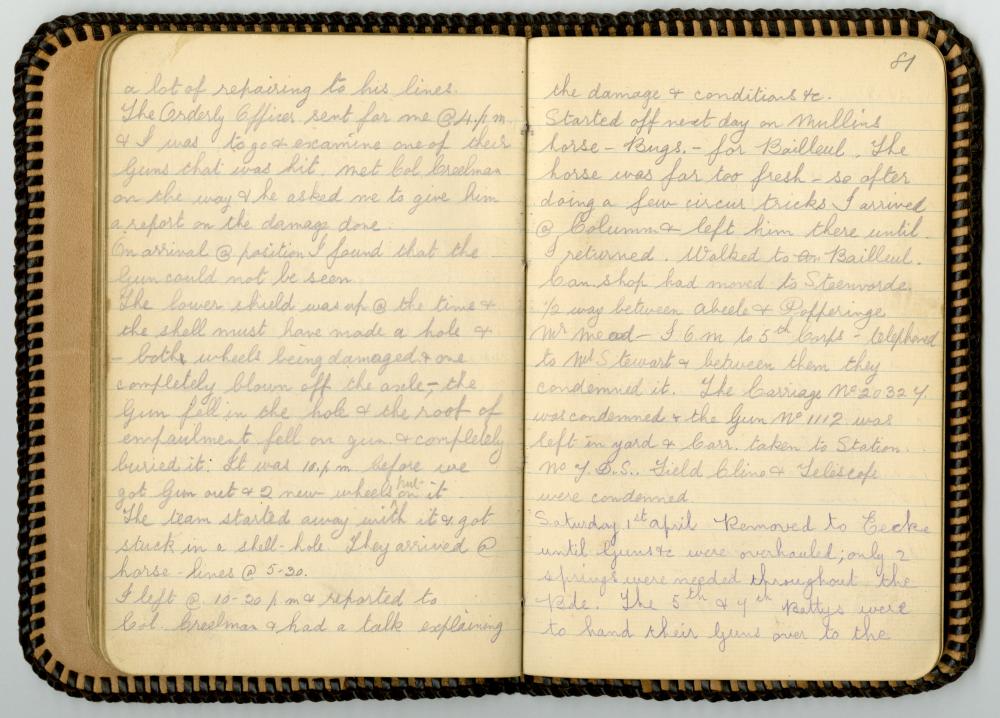 a lot of repairing to his lines.
The Orderly Officer sent for me @ 4.p.m.
& I was to go & examine one of their
Guns that was hit. met Col Creelman
on the way & he asked me to give him
a report on the damage done.
On arrival @ position I found that the
Gun could not be seen.
The lower shield was up @ the time &
the shell must have made a hole &
- both wheels being damaged & one
completely blown off the axle, - the
Gun fell in the hole & the roof of
empaulment fell on gun & completely
buried it. It was 10.p.m before we
got Gun out & 2 new wheels put on it
The team started away with it & got
stuck in a shell-hole. They arrived @
horse-lines @ 5-30.
I left @ 10-30 p.m & reported to
Col. Creelman & had a talk explaining
81
the damage & conditions &c.
Started off next day on Mullins
horse - Bugs. - for Bailleul. The
horse was far too fresh - so after
doing a few circus tricks I arrived
@ Column & left him there until
I returned. Walked to Bailleul.
Can shop had moved to Steenvorde.
1/2 way between Abeele & Popperinge
Mr Mead - I O m to 5th Corps - telephoned
to Stewart & between them they
condemned it. The Carriage No 20327.
was condemned & the Gun No 1112 was
left in yard & Carr. taken to Station.
No 7. D.S.. Field Clino & Telescope
were condemned.
Saturday 1st April Removed to Eecke
until Guns &c were overhauled; only 2
springs were needed throughout the
Bde. The 5th & 7th Battys were
to hand their Guns over to the